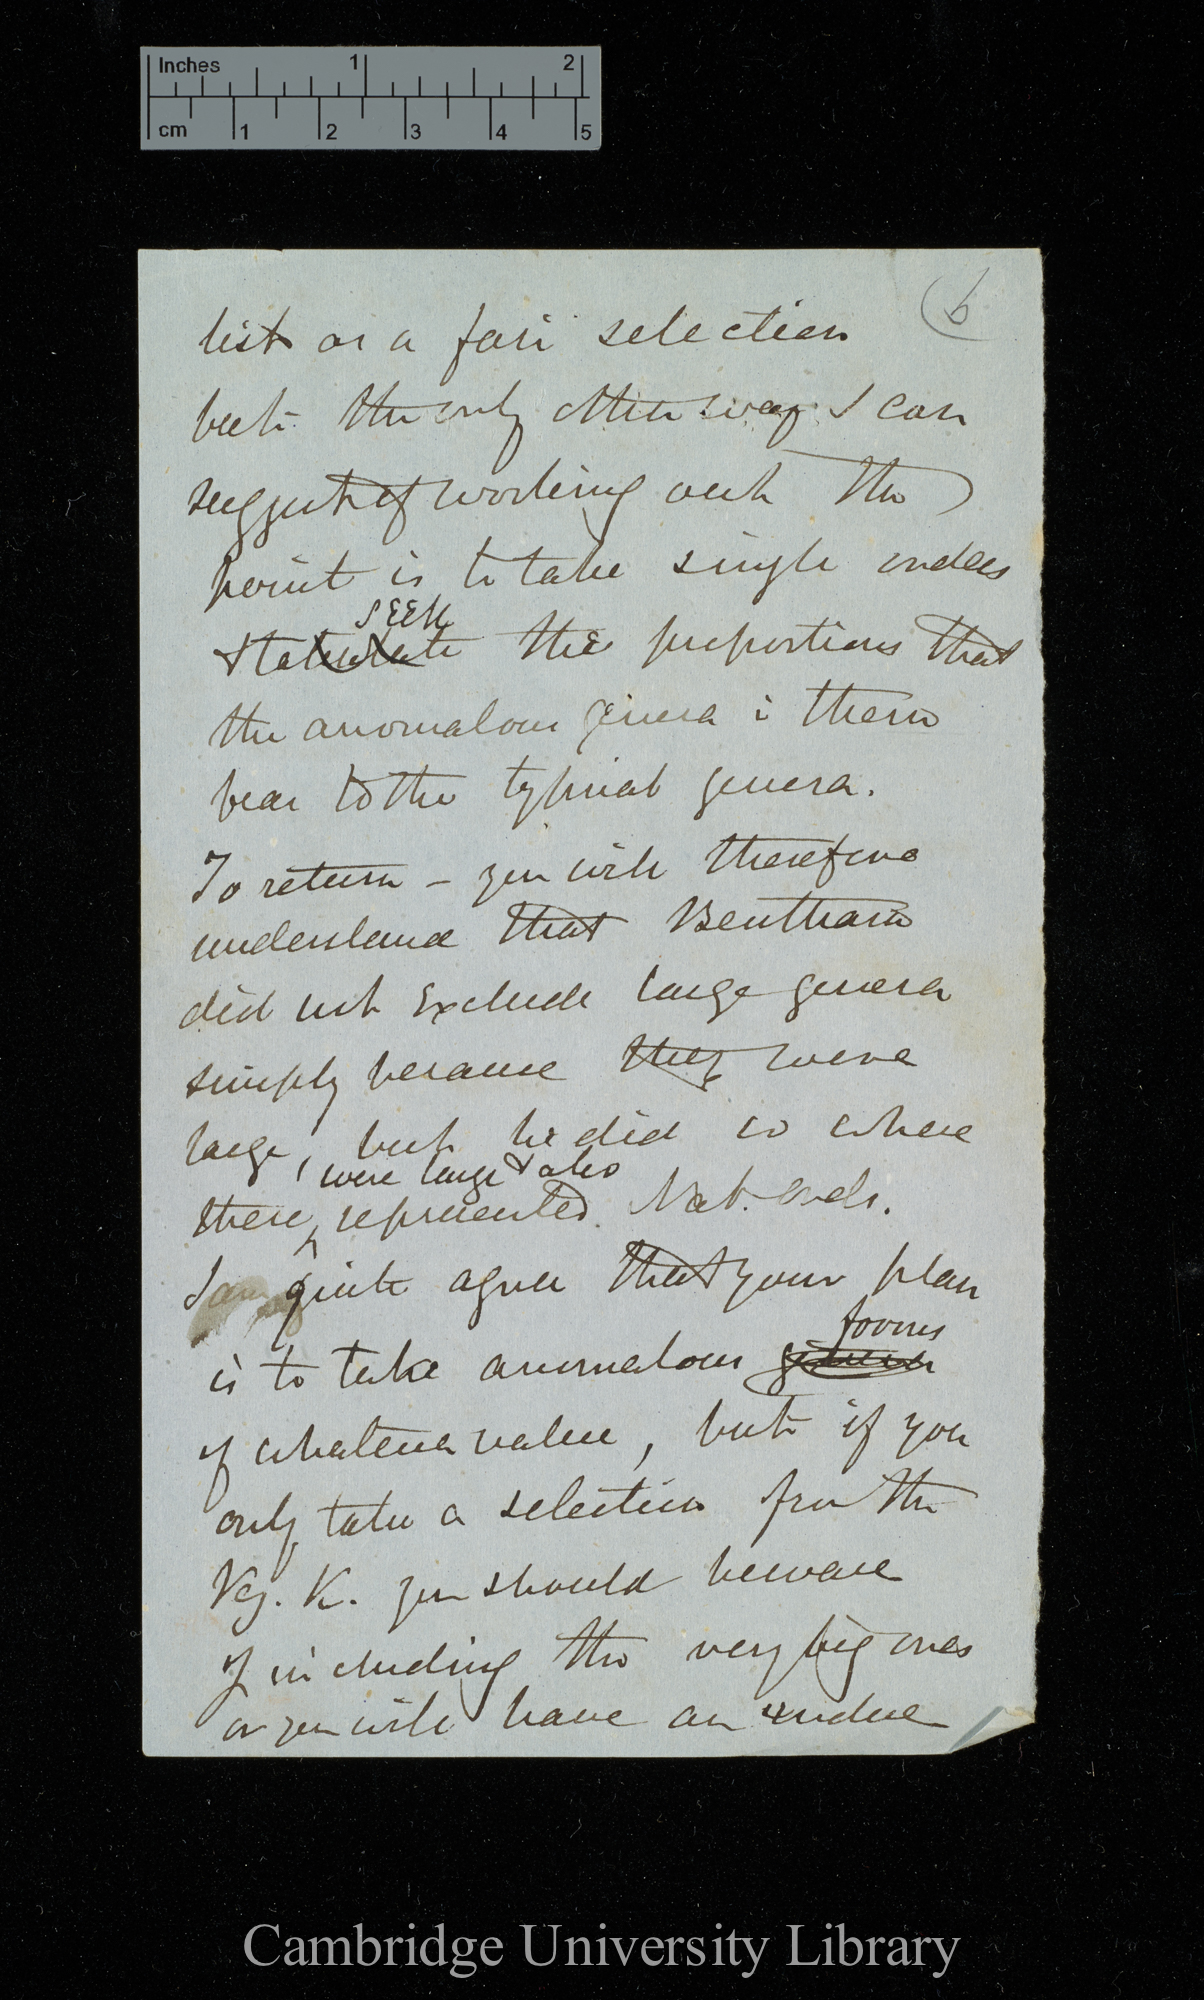 Inches 1 2
cm 1 2 3 4 5
6
list or a fair selection
but the only other way I can
suggest of working out the
point is to take single orders
& seek the proportions that
the anomalous genera in them
bear to the typical genera.
To return – you will therefore
understand that Bentham
did not exclude large genera
simply because they were
large, but he did so where
were large & also
these represented Nat. Ords.
I quite agree that your plan
forms
is to take anomalous genera
of whatever value, but if you
only take a selection from the
Veg. K. you should beware
of including the very big ones
or you will have an undue
Cambridge University Library